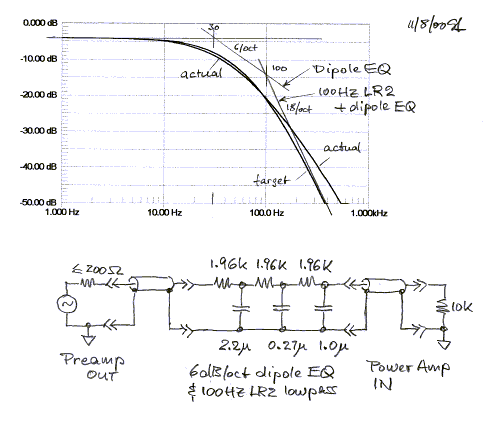 11/8/00 SL
0.000 dB
-10.00 dB
-20.00 dB
-30.00 dB
-40.00 dB
-50.00 dB
1.000 Hz
10.00 Hz
100.0 Hz
1.000kHz
30
6/oct
100
actual
Dipole EQ
100Hz LR2
+ dipole EQ
18/oct
actual
target
≤200Ω
1.96k
1.96k
1.96k
10k
2.2µ
0.27µ
1.0µ
Preamp
OUT
6dB/oct dipole EQ
& 100Hz LR2 lowpass
Power Amp
IN